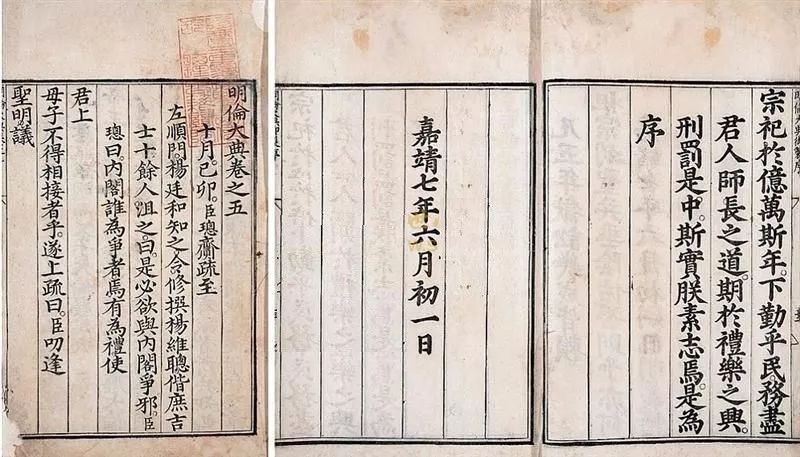 宗祀於億萬斯年。下勤乎民務盡
君人師長之道。期於禮樂之興。
刑罰是中。斯實朕素志焉。是為
序
嘉靖七年六月初一日
明倫大典卷之五
十月。己卯。臣璁齎疏至
左順門。楊廷和知之。令修撰楊維聰偕庶吉
士十餘人沮之。曰。是必欲與內閣爭邪。臣
璁曰。內閣誰為爭者。焉有為禮使
君上
母子不得相接者乎。遂上疏曰。臣叨逢
聖明。議